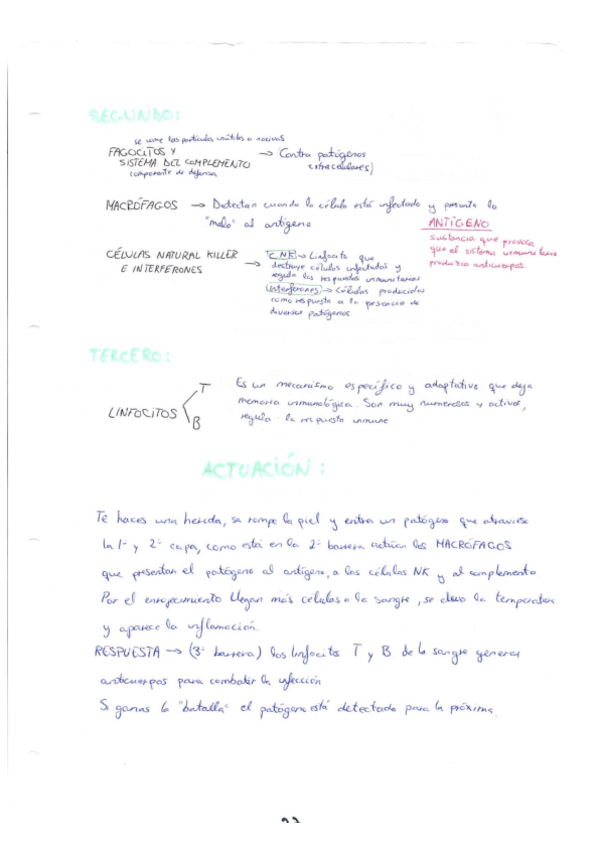 SEGUNDO:
se come las partículas inútiles o nocivas
FAGOCITOS Y
SISTEMA DEL COMPLEMENTO
componente de defensa
→ Contra patógenos
extracelulares)
MACRÓFAGOS → Detectan cuando la célula está infectada y presenta lo
"malo" al antígeno
ANTÍGENO
sustancia que provoca
que el sistema inmunitario
produzca anticuerpos.
CÉLULAS NATURAL KILLER
E INTERFERONES
→ CNK → Linfocito que
destruye células infectadas y
regula las respuestas inmunitarias
interferones → Células producidas
como respuesta a la presencia de
diversos patógenos
TERCERO:
LINFOCITOS
T
B
Es un mecanismo específico y adaptativo que deja
memoria inmunológica. Son muy numerosos y activos,
regula la respuesta inmune
ACTUACIÓN:
Te haces una herida, se rompe la piel y entra un patógeno que atraviese
la 1ª y 2ª capa, como está en la 2ª barrera actúan los MACRÓFAGOS
que presentan el patógeno al antígeno, a las células NK y al complemento
Por el enrojecimiento llegan más células a la sangre, se eleva la temperatura
y aparece la inflamación.
RESPUESTA → (3ª barrera) los linfocitos T y B de la sangre generan
anticuerpos para combatir la infección
Si ganas la "batalla" el patógeno está detectado para la próxima.